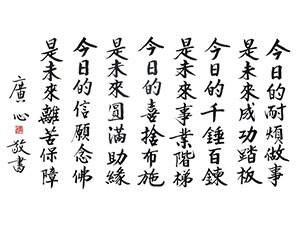 今日的耐煩做事
是未來成功踏板
今日的千錘百鍊
是未來事業階梯
今日的喜捨布施
是未來圓滿助緣
今日的信願念佛
是未來離苦保障
廣心
敬書